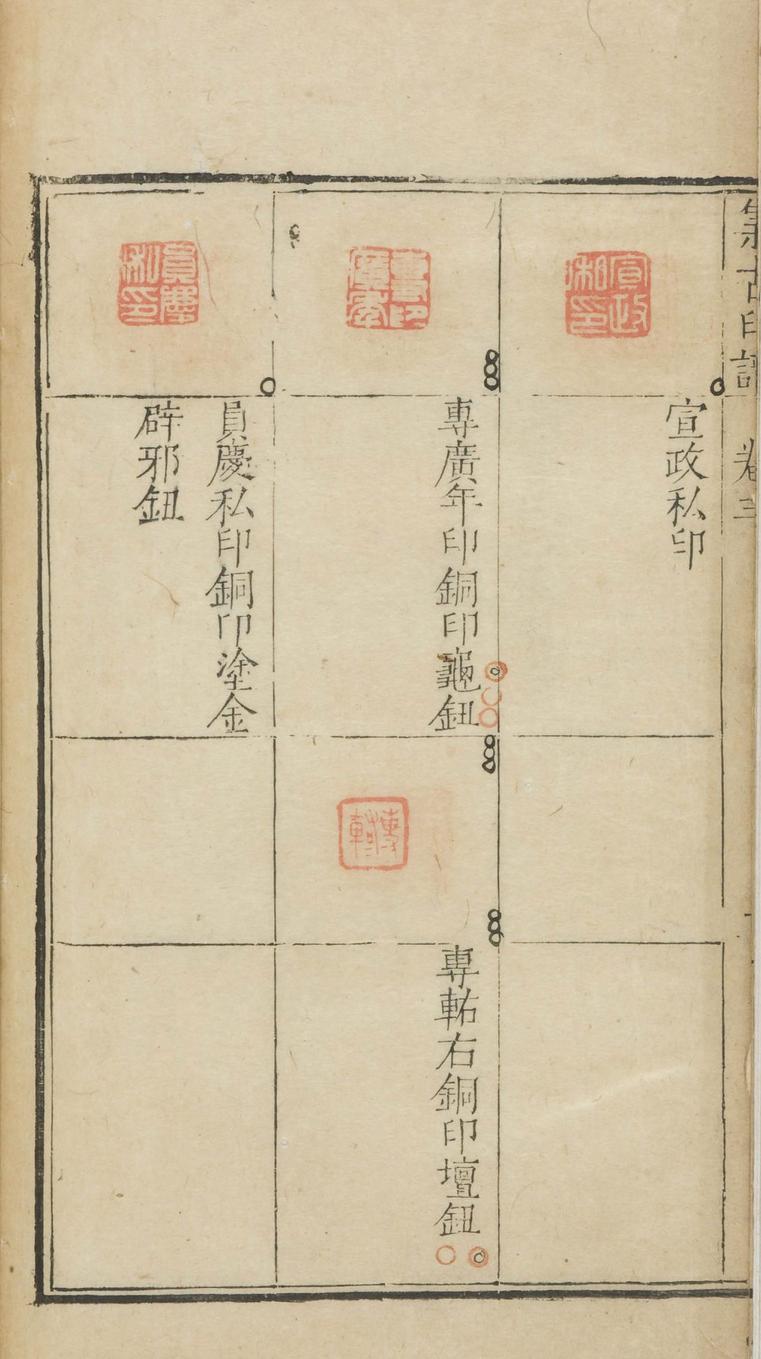 集古印譜 卷三
宣政私印
宣政私印
專廣年印銅印龜鈕
專軩右銅印壇鈕
員慶私印
員慶私印銅印塗金
辟邪鈕